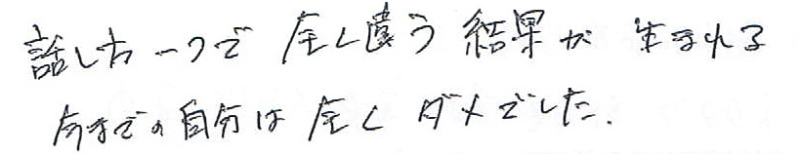 話し方一つで 全く違う 結果が 生まれる
今までの自分は 全く ダメでした.